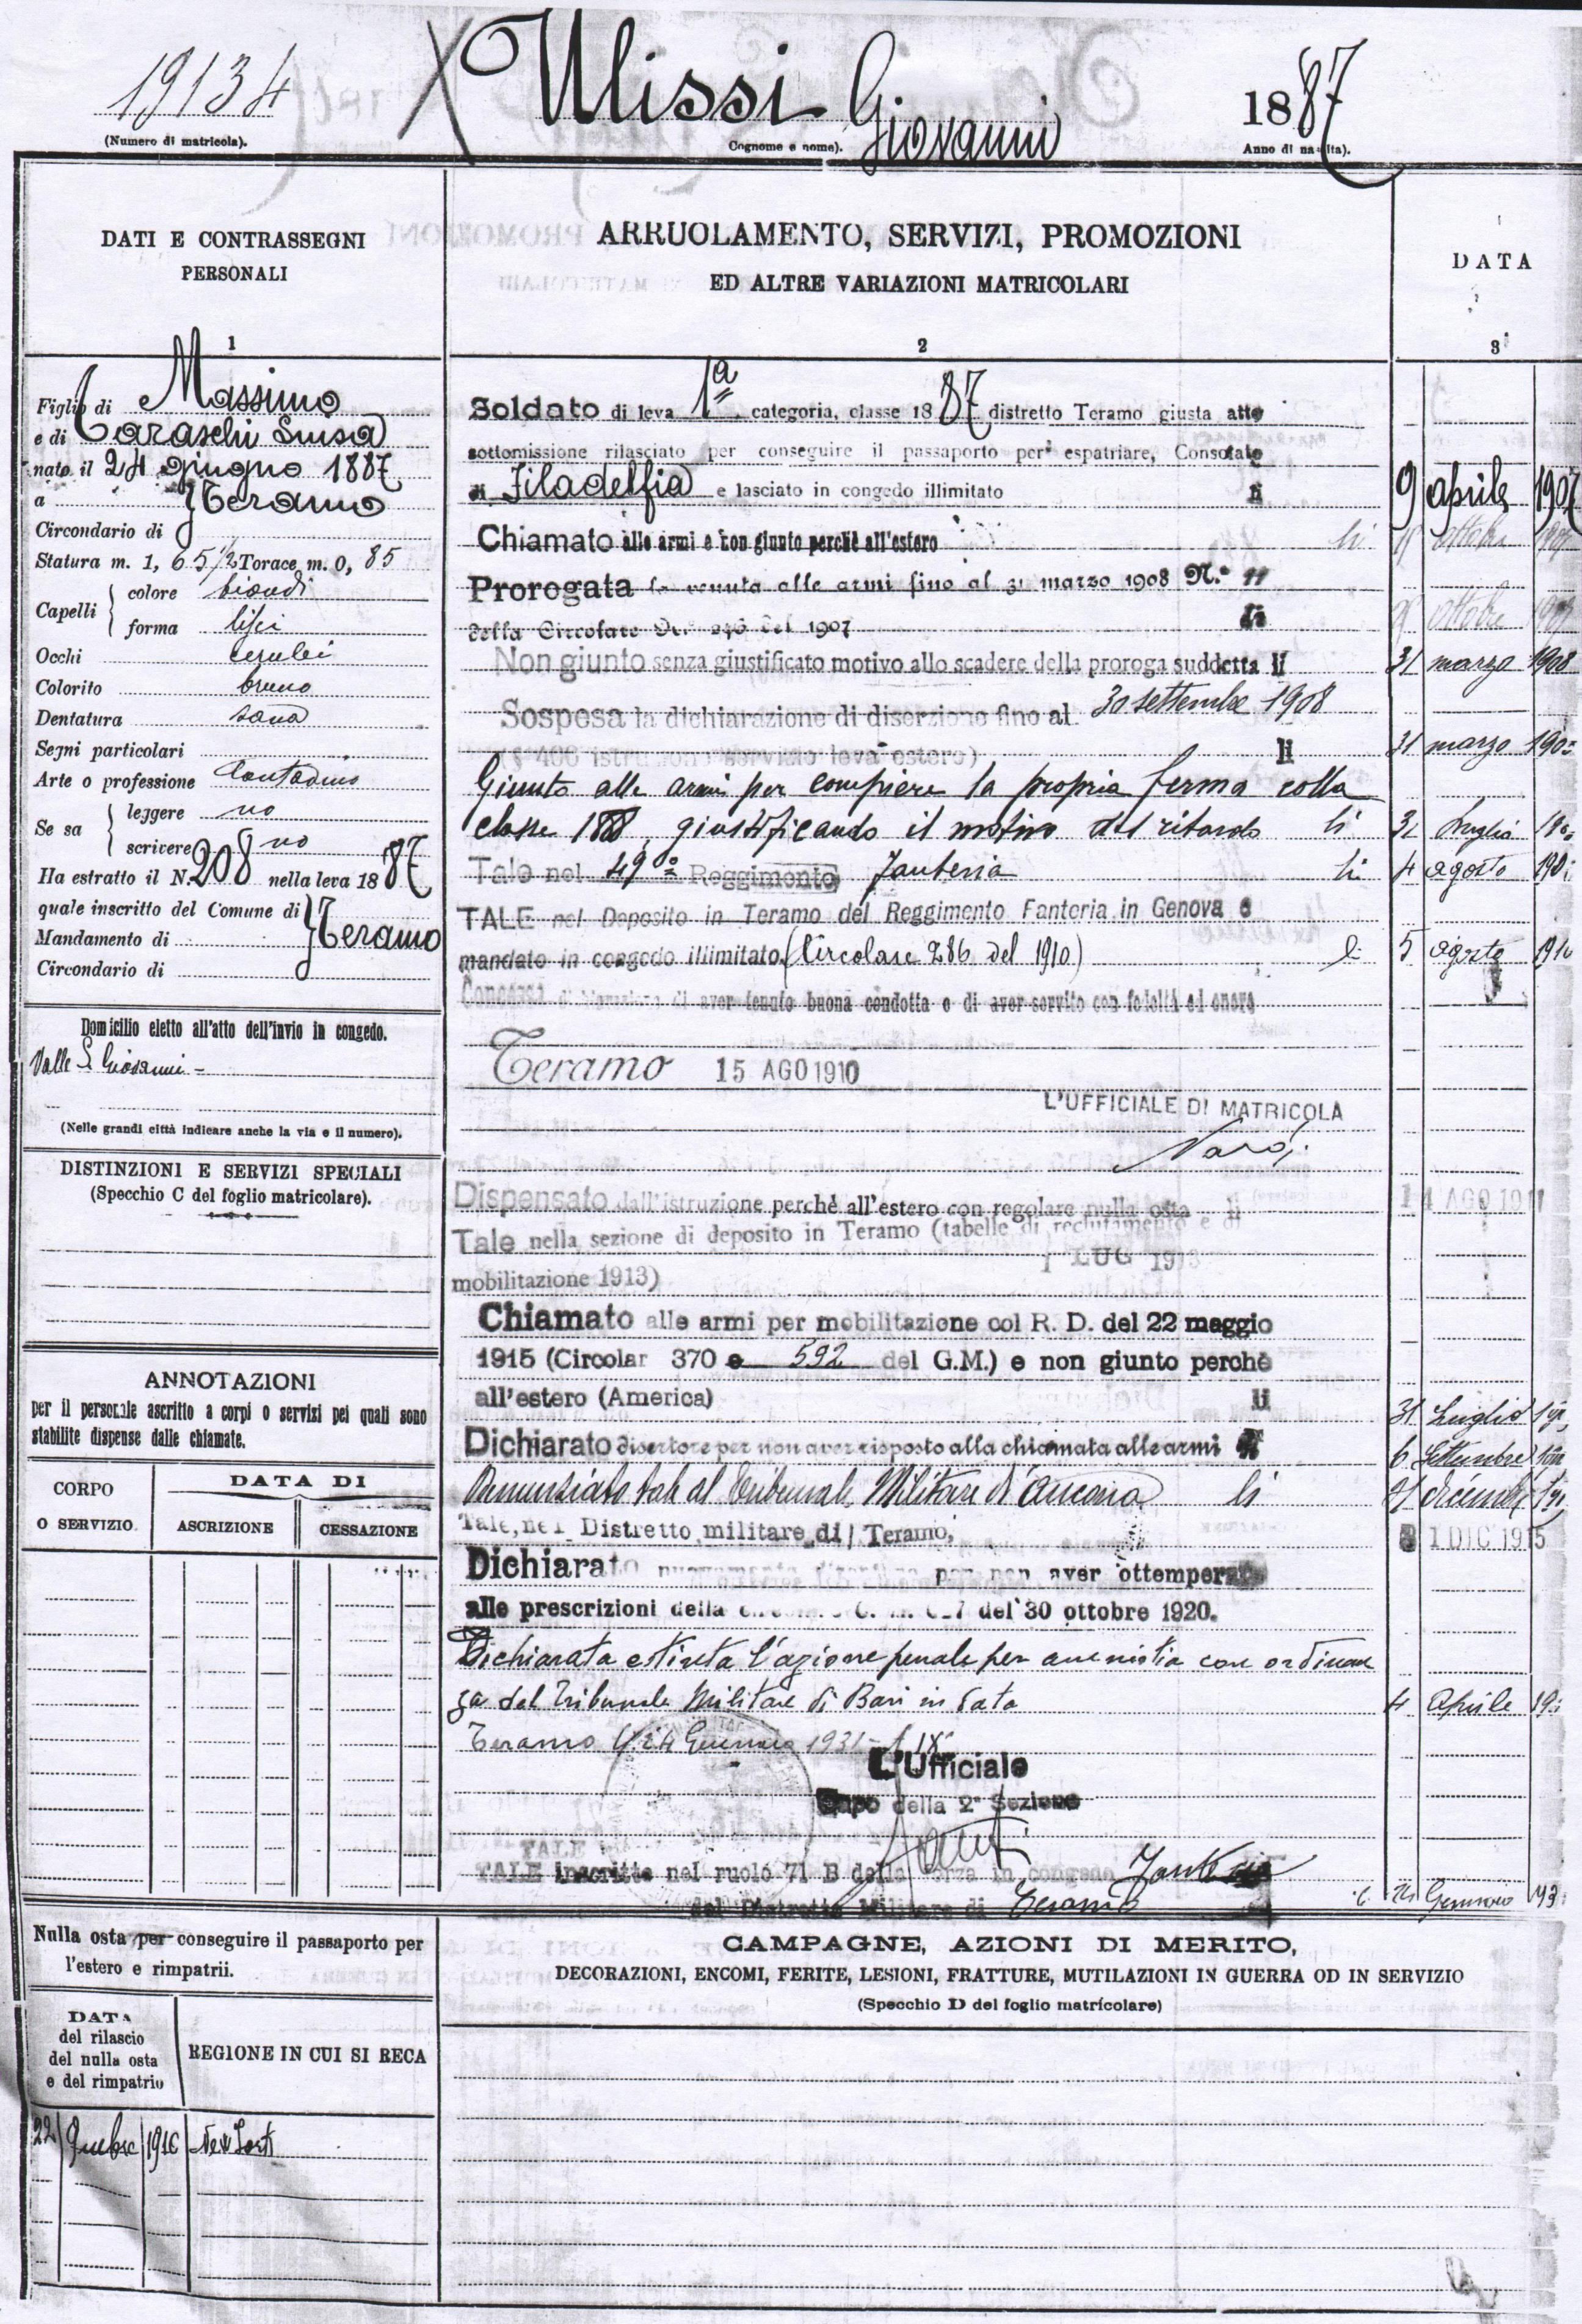 19134
(Numero di matricola).
Ulissi Giovanni
Cognome e nome).
1887
Anno di nascita).
DATI E CONTRASSEGNI
PERSONALI
1
Figlio di Massimo
e di Taraschi Luisa
nato il 24 giugno 1887
a Teramo
Circondario di
Statura m. 1, 65 1/2 Torace m. 0, 85
Capelli
colore biondi
forma lisci
Occhi cerulei
Colorito bruno
Dentatura sana
Segni particolari
Arte o professione Contadino
Se sa
leggere no
scrivere no
Ha estratto il N. 208 nella leva 1887
quale inscritto del Comune di
Mandamento di Teramo
Circondario di
Domicilio eletto all'atto dell'invio in congedo.
Valle S. Giovanni -
(Nelle grandi città indicare anche la via e il numero).
DISTINZIONI E SERVIZI SPECIALI
(Specchio C del foglio matricolare).
ANNOTAZIONI
per il personale ascritto a corpi o servizi pei quali sono
stabilite dispense dalle chiamate.
CORPO
O SERVIZIO
DATA DI
ASCRIZIONE
CESSAZIONE
Nulla osta per conseguire il passaporto per
l'estero e rimpatrii.
DATA
del rilascio
del nulla osta
e del rimpatrio
REGIONE IN CUI SI RECA
22 9mbre 1910 New York
ARRUOLAMENTO, SERVIZI, PROMOZIONI
ED ALTRE VARIAZIONI MATRICOLARI
2
DATA
3
Soldato di leva 1ª categoria, classe 1887 distretto Teramo giusta atto
sottomissione rilasciato per conseguire il passaporto per espatriare, Consolato
di Filadelfia e lasciato in congedo illimitato li 9 aprile 1907
Chiamato alle armi e non giunto perchè all'estero li ottobre
Prorogata la venuta alle armi fino al 31 marzo 1908 N.° 11
della Circolare del 1907 li ottobre
Non giunto senza giustificato motivo allo scadere della proroga suddetta li 31 marzo 1908
Sospesa la dichiarazione di diserzione fino al 30 settembre 1908
(§ 400 istruzione servizio leva estero) li 31 marzo
Giunto alle armi per compiere la propria ferma colla
classe 1888, giustificando il motivo del ritardo li luglio
Tale nel 49° Reggimento Fanteria li 4 agosto
TALE nel Deposito in Teramo del Reggimento Fanteria in Genova e
mandato in congedo illimitato (Circolare 286 del 1910) li 5 agosto 1910
di aver tenuto buona condotta e di aver servito con fedeltà ed onore
Teramo 15 AGO 1910
L'UFFICIALE DI MATRICOLA
Dispensato dall'istruzione perchè all'estero con regolare nulla osta li 14 AGO 1911
Tale nella sezione di deposito in Teramo (tabelle di reclutamento e di
1 LUG 1913
mobilitazione 1913)
Chiamato alle armi per mobilitazione col R. D. del 22 maggio
1915 (Circolar 370 e 592 del G.M.) e non giunto perchè
all'estero (America) li 31 Luglio
Dichiarato disertore per non aver risposto alla chiamata alle armi 6 Settembre
Denunziato tale al Tribunale Militare di Ancona li dicembre
Tale, nel Distretto militare di Teramo, 31 DIC 1915
Dichiarato nuovamente disertore per non aver ottemperato
alle prescrizioni della del 30 ottobre 1920.
Dichiarata estinta l'azione penale per amnistia con ordinan
za del Tribunale Militare di Bari in data 4 Aprile
Teramo li 24 Gennaio 1931
L'Ufficiale
Capo della 2ª Sezione
TALE
TALE inscritto nel ruolo 71 B della forza in congedo
del Distretto Militare di Teramo Gennaio
CAMPAGNE, AZIONI DI MERITO,
DECORAZIONI, ENCOMI, FERITE, LESIONI, FRATTURE, MUTILAZIONI IN GUERRA OD IN SERVIZIO
(Specchio D del foglio matricolare)